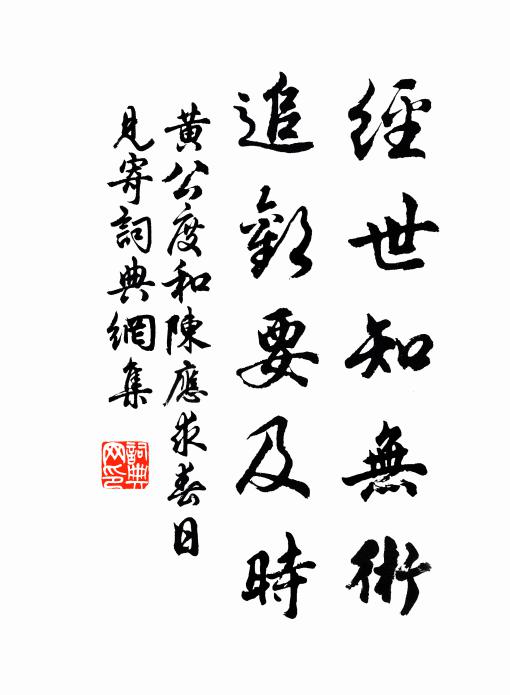 經世知無術
追歡要及時
黃公度和陳應求春日
見寄詞典網集
詞典
网印